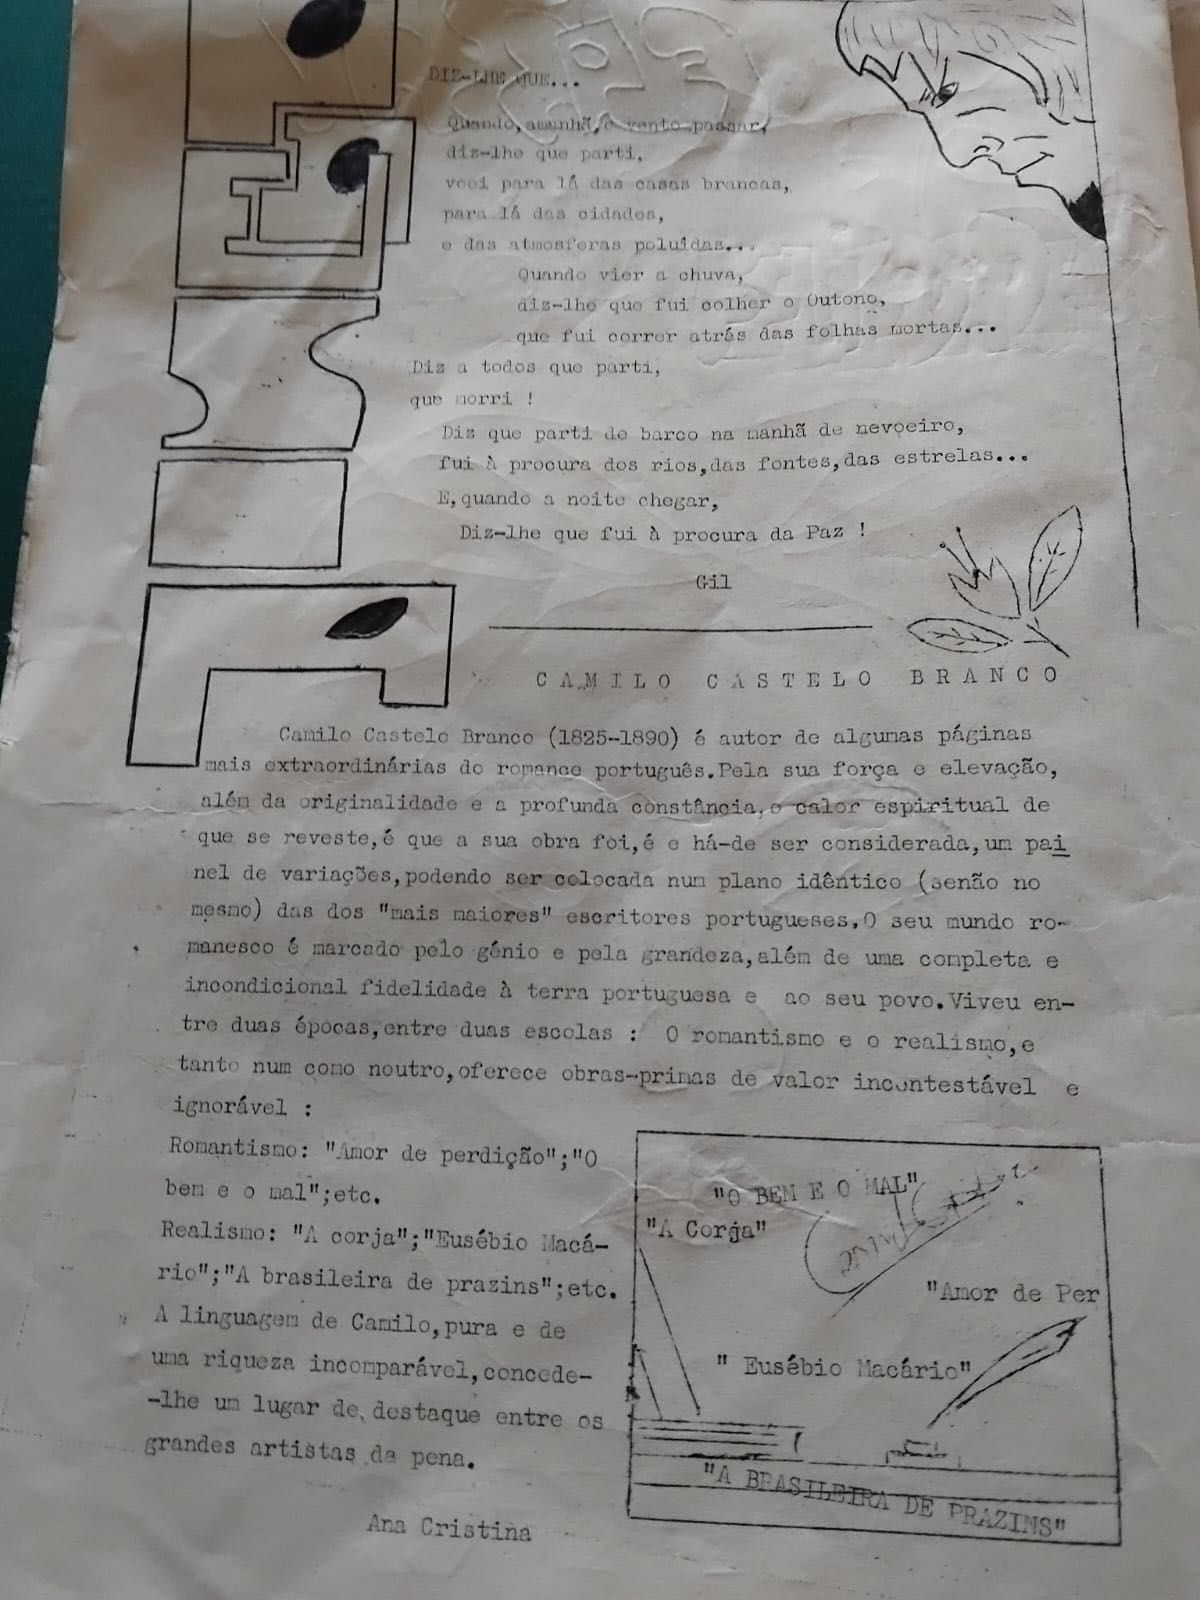 DIZ-LHE QUE...
Quando,amanhã,o vento passar,
diz-lhe que parti,
voei para lá das casas brancas,
para lá das cidades,
e das atmosferas poluídas...
Quando vier a chuva,
diz-lhe que fui colher o Outono,
que fui correr atrás das folhas mortas...
Diz a todos que parti,
que morri !
Diz que parti de barco na manhã de nevoeiro,
fui à procura dos rios,das fontes,das estrelas...
E,quando a noite chegar,
Diz-lhe que fui à procura da Paz !
Gil
CAMILO CASTELO BRANCO
Camilo Castelo Branco (1825-1890) é autor de algumas páginas
mais extraordinárias do romance português.Pela sua força e elevação,
além da originalidade e a profunda constância,o calor espiritual de
que se reveste,é que a sua obra foi,é e há-de ser considerada,um pai
nel de variações,podendo ser colocada num plano idêntico (senão no
mesmo) das dos "mais maiores" escritores portugueses.O seu mundo ro-
manesco é marcado pelo génio e pela grandeza,além de uma completa e
incondicional fidelidade à terra portuguesa e ao seu povo.Viveu en-
tre duas épocas,entre duas escolas : O romantismo e o realismo,e
tanto num como noutro,oferece obras-primas de valor incontestável e
ignorável :
Romantismo: "Amor de perdição";"O
bem e o mal";etc.
Realismo: "A corja";"Eusébio Macá-
rio";"A brasileira de prazins";etc.
A linguagem de Camilo,pura e de
uma riqueza incomparável,concede-
-lhe um lugar de destaque entre os
grandes artistas da pena.
Ana Cristina
"O BEM E O MAL"
"A Corja"
"Amor de Per
" Eusébio Macário"
"A BRASILEIRA DE PRAZINS"